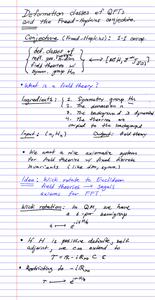 Deformation classes of QFTs
and the Freed-Hopkins conjecture.
Conjecture (Freed-Hopkins): 1-1 corresp.
{ def. classes of
refl. pos. invertible
field theories w/
symm. group Hn } ⟷
• What is a field theory?
Ingredients: 1. Symmetry group Hn
2. The dimension n
3. The background is dynamical
4. The theories
coupled to the background
Input: (n, Hn) Output: field theory
• We want a nice axiomatic system
for field theories w/ fixed discrete
invariants (like dim, symm).
Idea: Wick rotate to Euclidean
field theories → Segal's
axioms for FFT.
Wick rotation: In QM, we have
a 1-par semigroup
• If H is positive definite, self
adjoint, we can extend to
• Restricting to